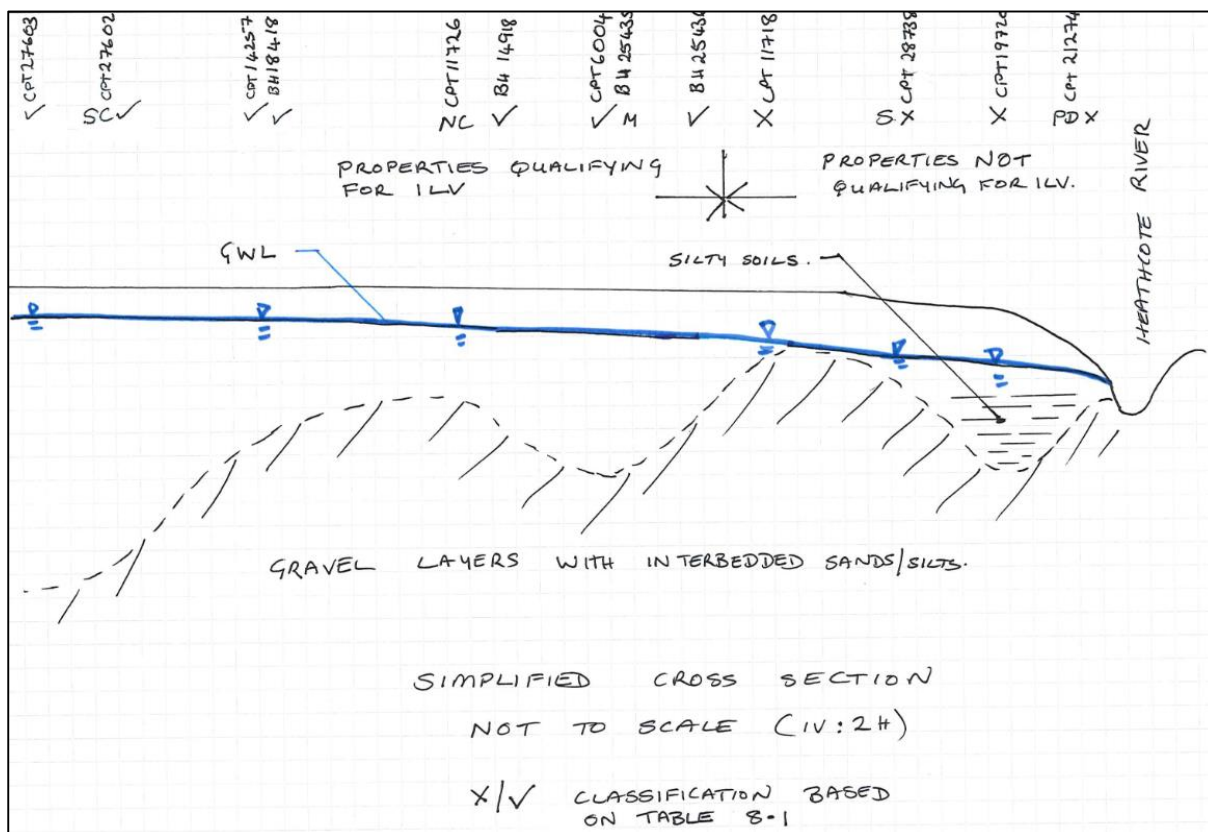 CPT27603
CPT27602
CPT14257
BH18418
CPT11726
BH 14918
CPT6004
BH 25435
BH 25436
CPT 11718
CPT 28788
CPT19720
CPT 21274
✓ SC✓ ✓ ✓ NC ✓ ✓ M ✓ X S X X PD X
PROPERTIES QUALIFYING
FOR ILV
PROPERTIES NOT
QUALIFYING FOR ILV.
HEATHCOTE RIVER
GWL
SILTY SOILS.
GRAVEL LAYERS WITH INTERBEDDED SANDS/SILTS.
SIMPLIFIED CROSS SECTION
NOT TO SCALE (1V:2H)
X/✓ CLASSIFICATION BASED
ON TABLE 8-1